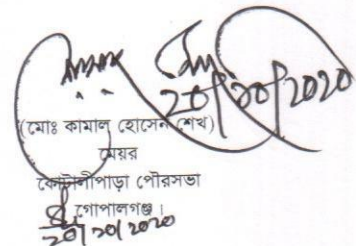 ২০/১০/২০২০
(মোঃ কামাল হোসেন শেখ)
মেয়র
কোটালীপাড়া পৌরসভা
গোপালগঞ্জ।
২০/১০/২০২০